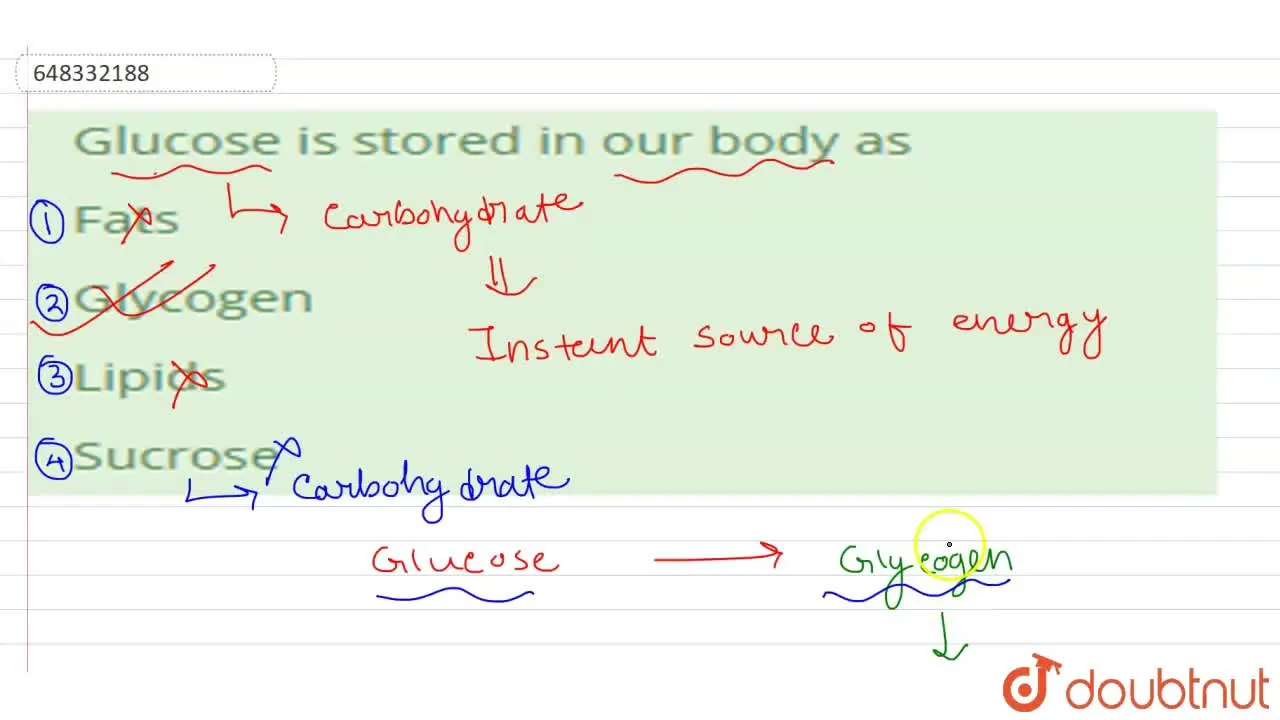 648332188
Glucose is stored in our body as
① Fats
Carbohydrate
② Glycogen
Instant source of energy
③ Lipids
④ Sucrose
Carbohydrate
Glucose → Glycogen
doubtnut